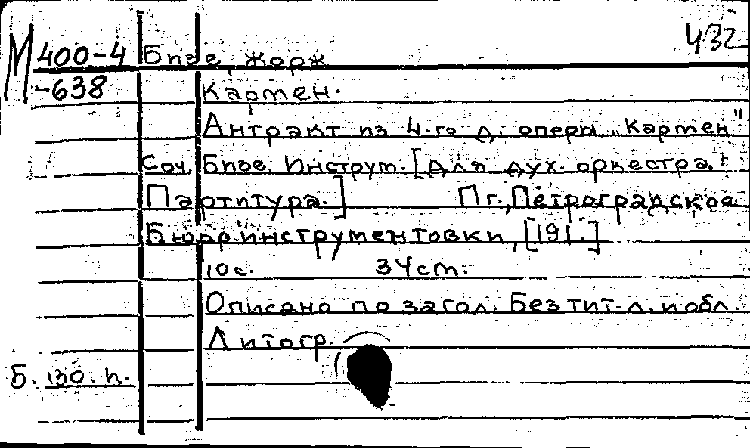 432
М 400-4 Бизе, Жорж
-638 Кармен.
Антракт из 4-го д. оперы „Кармен"
Соч. Бизе. Инструм. [для дух. оркестра.
Партитура.] Пг., Петроградское
Бюро инструментовки, [191.]
10 с. 34 cm.
Описано по загол. Без тит. л. и обл.
Литогр.
Б. 130. п.